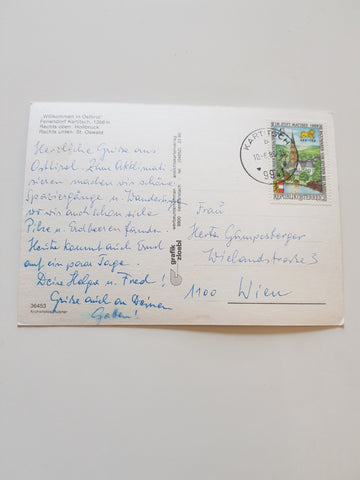 „Willkommen in Osttirol"
Feriendorf Kartitsch, 1356 m
Rechts oben: Hollbruck
Rechts unten: St. Oswald
Herzliche Grüße aus
Osttirol. Zum Akklimati
sieren machen wir schöne
Spaziergänge u. Wanderungen
wo wir auch schon viele
Pilze u. Erdbeeren fanden.
Heute kommt auch
auf ein paar Tage.
Deine Helga u. Fred!
Grüße auch an Deinen
36453
grafik
zloebl
KARTITSCH
REPUBLIK ÖSTERREICH
Frau
Herta Gumpesberger
Wielandstraße 3
1100 Wien